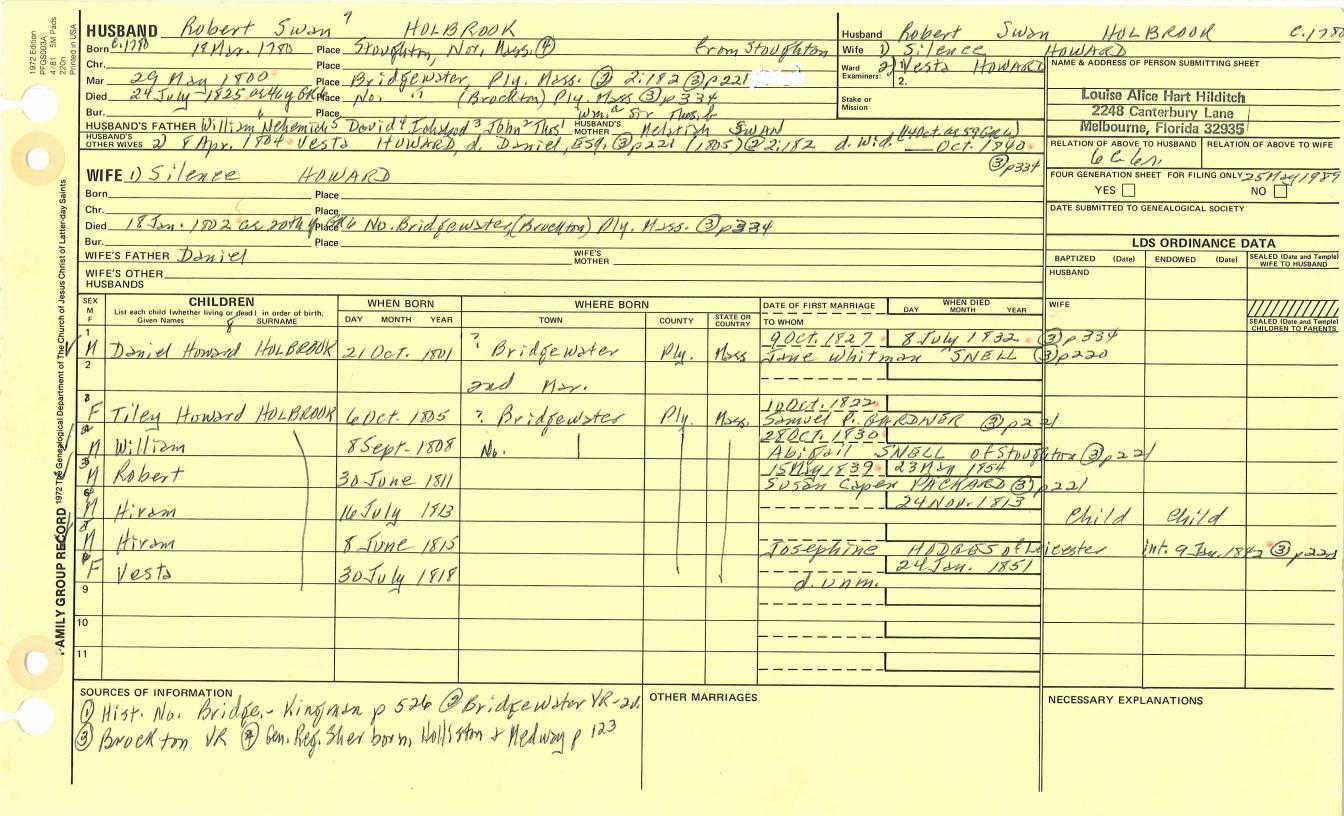 1972 Edition
PFGS003A
4/81 5M Pads
220n
Printed in USA
FAMILY GROUP RECORD 1972 The Genealogical Department of The Church of Jesus Christ of Latter-day Saints
HUSBAND Robert Swan 7 HOLBROOK
Born c.1780 18 Mar. 1780 Place Stoughton, Nor. Mass. ④ from Stoughton
Chr. Place
Mar 29 May 1800 Place Bridgewater, Ply. Mass. ② 2:182 ③ p221
Died 24 July 1825 Place No. " (Brockton) Ply. Mass ③ p334
Bur. Place
HUSBAND'S FATHER William Nehemiah5 David4 Ichabod3 John2 Thos1 HUSBAND'S MOTHER SWAN
HUSBAND'S OTHER WIVES 2) 8 Apr. 1804 Vesta HOWARD, d. Daniel, Esq. ③ p221 (1805) ② 2:182 d. wid. Oct. 1840
③ p334
WIFE 1) Silence HOWARD
Born Place
Chr. Place
Died 18 Jan. 1802 Place No. Bridgewater, (Brockton) Ply. Mass. ③ p334
Bur. Place
WIFE'S FATHER Daniel WIFE'S MOTHER
WIFE'S OTHER HUSBANDS
Husband Robert Swan HOLBROOK c.1780
Wife 1) Silence HOWARD
Ward Examiners: 1. 2) Vesta HOWARD
2.
Stake or Mission
NAME & ADDRESS OF PERSON SUBMITTING SHEET
Louise Alice Hart Hilditch
2248 Canterbury Lane
Melbourne, Florida 32935
RELATION OF ABOVE TO HUSBAND RELATION OF ABOVE TO WIFE
FOUR GENERATION SHEET FOR FILING ONLY 25 May 1989
YES NO
DATE SUBMITTED TO GENEALOGICAL SOCIETY
LDS ORDINANCE DATA
BAPTIZED (Date) ENDOWED (Date) SEALED (Date and Temple) WIFE TO HUSBAND
HUSBAND
WIFE
SEALED (Date and Temple) CHILDREN TO PARENTS
SEX M F
CHILDREN
List each child (whether living or dead) in order of birth.
Given Names 8 SURNAME
WHEN BORN
DAY MONTH YEAR
WHERE BORN
TOWN COUNTY STATE OR COUNTRY
DATE OF FIRST MARRIAGE
TO WHOM
WHEN DIED
DAY MONTH YEAR
1 M Daniel Howard HOLBROOK 21 Oct. 1801 ? Bridgewater Ply. Mass 9 Oct. 1827 8 July 1832 ③ p334
Jane Whitman SNELL ③ p220
2 2nd Mar.
F Tiley Howard HOLBROOK 6 Oct. 1805 ? Bridgewater Ply. Mass. 10 Oct. 1822
Samuel P. GARDNER ③ p221
M William 8 Sept. 1808 No. 28 Oct. 1830
Abigail SNELL of Stoughton ③ p221
M Robert 30 June 1811 15 May 1839 23 May 1854
Susan Capen PACKARD ③ p221
M Hiram 16 July 1813 24 Nov. 1813 Child Child
M Hiram 8 June 1815 Josephine HODGES of Leicester int. 9 Jan. 1842 ③ p221
F Vesta 30 July 1818 24 Jan. 1851
d. unm.
9
10
11
SOURCES OF INFORMATION
① Hist. No. Bridge. - Kingman p 526 ② Bridgewater VR-2v.
③ Brockton VR ④ Gen. Reg. Sherborn, Holliston & Medway p 123
OTHER MARRIAGES
NECESSARY EXPLANATIONS